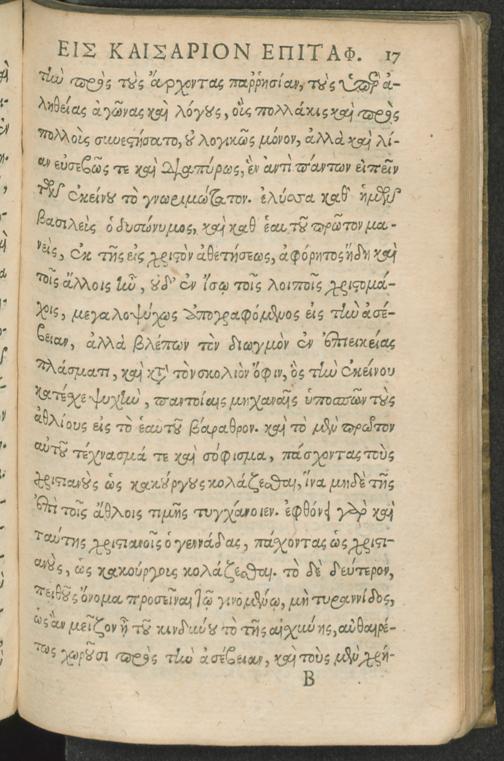 ΕΙΣ ΚΑΙΣΑΡΙΟΝ ΕΠΙΤΑΦ. 17
τὴν πρὸς τοὺς ἄρχοντας παῤῥησίαν, τοὺς ὑπὲρ ἀ-
ληθείας ἀγῶνας καὶ λόγους, οἷς πολλάκις καὶ πρὸς
πολλοὺς συνεστήσατο, οὐ λογικῶς μόνον, ἀλλὰ καὶ λί-
αν εὐσεβῶς τε καὶ διαπύρως, ἓν ἀντὶ πάντων εἰπεῖν
τῶν ἐκείνου τὸ γνωριμώτατον. ἐλύσσα καθ' ἡμῶν
βασιλεὺς ὁ δυσώνυμος, καὶ καθ' ἑαυτοῦ πρῶτον μα-
νεὶς, ἐκ τῆς εἰς χριστὸν ἀθετήσεως, ἀφόρητος ἤδη καὶ
τοῖς ἄλλοις ἦν, οὐδ' ἐν ἴσῳ τοῖς λοιποῖς χριστομά-
χοις, μεγαλοψύχως ἀπογραφόμενος εἰς τὴν ἀσέ-
βειαν, ἀλλὰ βλέπων τὸν διωγμὸν ἐν ἐπιεικείας
πλάσματι, καὶ κατὰ τὸν σκολιὸν ὄφιν, ὃς τὴν ἐκείνου
κατέχε ψυχὴν, παντοίαις μηχαναῖς ὑποσπῶν τοὺς
ἀθλίους εἰς τὸ ἑαυτοῦ βάραθρον. καὶ τὸ μὲν πρῶτον
αὐτοῦ τέχνασμά τε καὶ σόφισμα, πάσχοντας τοὺς
χριστιανοὺς ὡς κακούργους κολάζεσθαι, ἵνα μηδὲ τῆς
ἐπὶ τοῖς ἄθλοις τιμῆς τυγχάνοιεν. ἐφθόνει γὰρ καὶ
ταύτης χριστιανοῖς ὁ γεννάδας, πάσχοντας ὡς χριστι-
ανοὺς, ὡς κακούργους κολάζεσθαι. τὸ δὲ δεύτερον,
πειθοῦς ὄνομα προσεῖναι τῷ γινομένῳ, μὴ τυραννίδος,
ὡς ἂν μεῖζον ᾖ τοῦ κινδύνου τὸ τῆς αἰσχύνης, αὐθαιρέ-
τως χωροῦσι πρὸς τὴν ἀσέβειαν, καὶ τοὺς μὲν χρή-
B